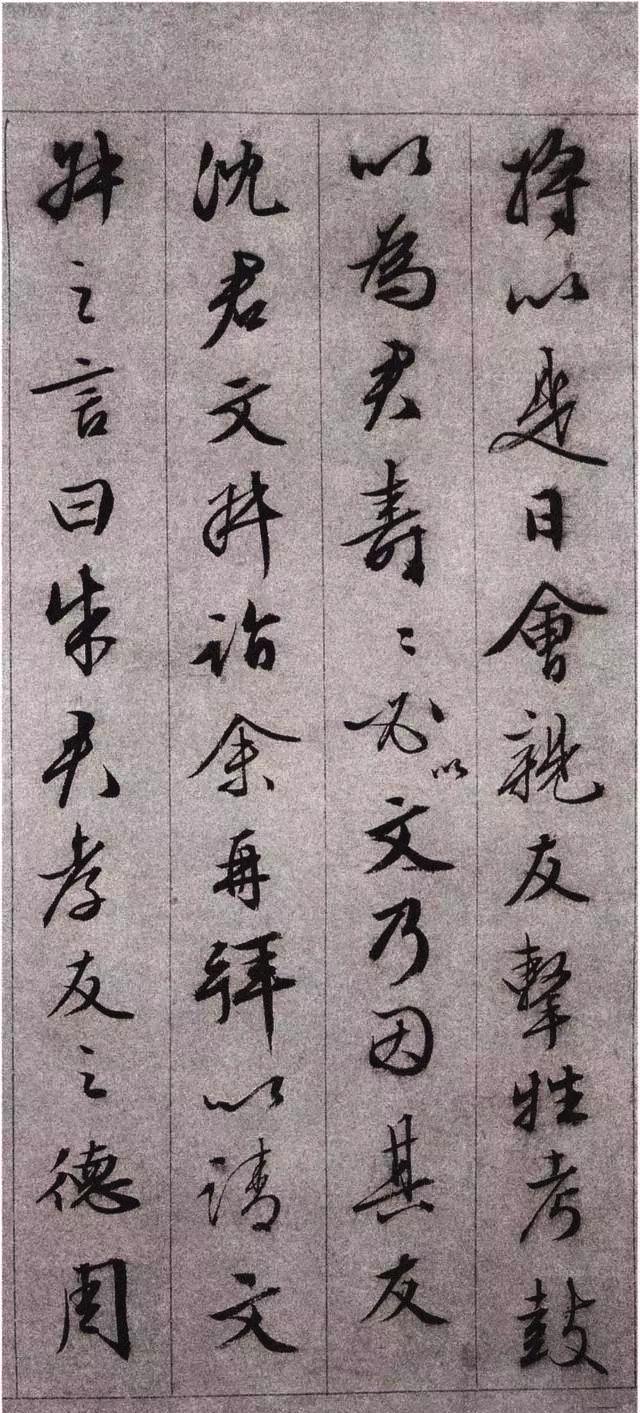 将以是日會親友擊牲考鼓
以為君壽〻必以文乃因其友
沈君文𦫵詣余再拜以請文
𦫵之言曰朱君孝友之德周